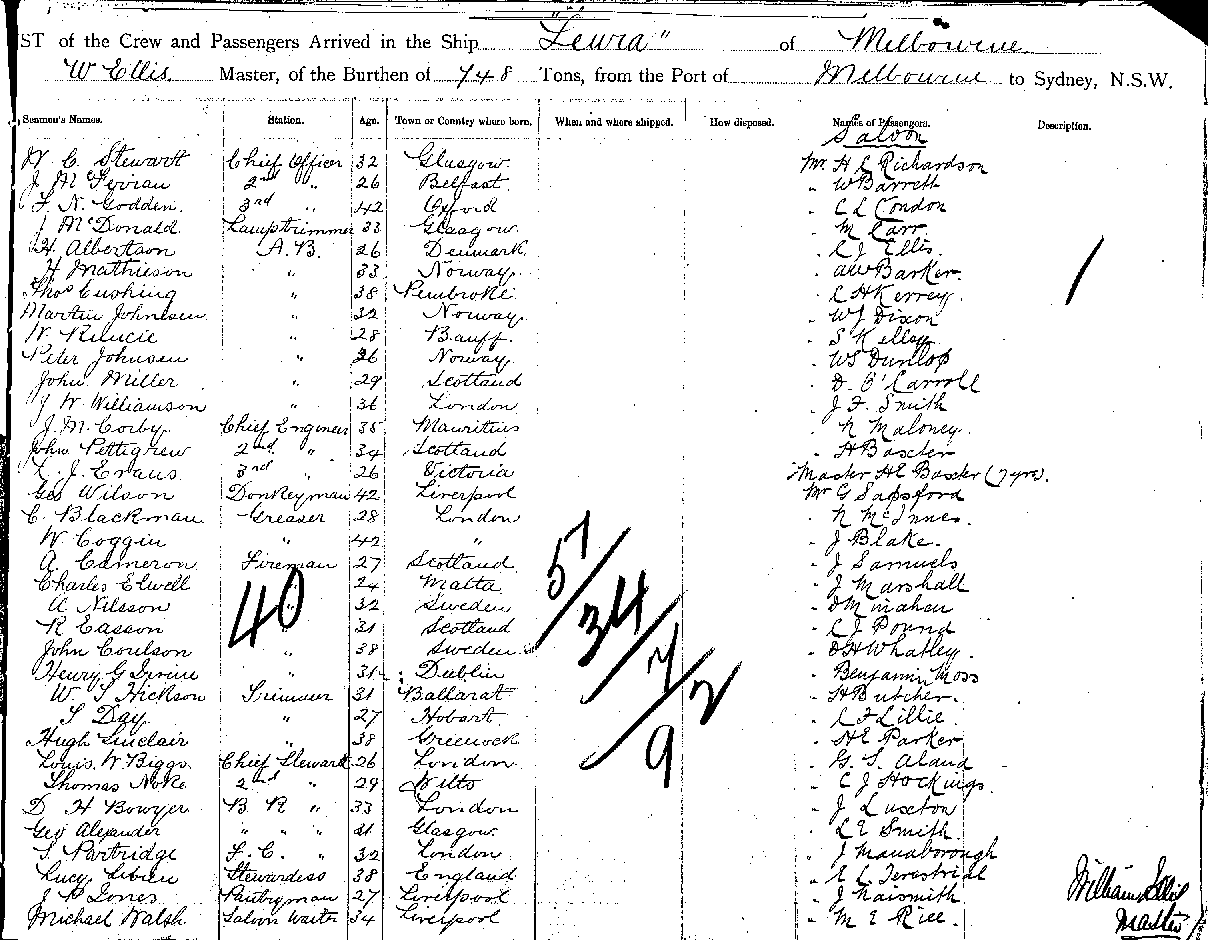 ST of the Crew and Passengers Arrived in the Ship "Leura" of Melbourne
W Ellis Master, of the Burthen of 748 Tons, from the Port of Melbourne to Sydney, N.S.W.
Seamen's Names. Station. Age. Town or Country where born. When and where shipped. How disposed. Names of Passengers. Description.
Saloon
W. C. Stewart Chief Officer 32 Glasgow Mr H L Richardson
J. 2nd " 26 Belfast " W Barrett
F. N. Godden 3rd " 42 Oxford " C L Condon
J McDonald Lamptrimmer 33 Glasgow " M Carr
H Albertson A.B. 26 Denmark " C J Ellis
H Mathieson " 33 Norway " AW Barker
Thos Cushing " 38 Pembroke " C H Kerrey
Martin Johnsen " 32 Norway " W J Dixon
W. " 28 Banff " S Kelley
Peter Johnsen " 26 Norway " WS Dunlop
John Miller " 29 Scotland " D. O'Carroll
J W Williamson " 36 London " J F Smith
J. M. Corby Chief Engineer 35 Mauritius " N Maloney
John Pettigrew 2nd " 34 Scotland " H Baxter
J. Evans 3rd " 26 Victoria Master HE Baxter (7 yrs).
Geo Wilson Donkeyman 42 Liverpool Mr G Sapsford
C. Blackman Greaser 28 London " N McInnes
W. Coggin " 42 " " J Blake
A. Cameron Fireman 27 Scotland " J Samuels
Charles Elwell " 24 Malta " J Marshall
A Nilsson " 32 Sweden " D Minahen
R Easson " 31 Scotland " C J Pound
John Coulson " 38 Sweden " D H Whatley
Henry G 31 Dublin " Benjamin Moss
W. S Hickson Trimmer 31 Ballarat " H Butcher
S Day " 27 Hobart " C F Lillie
Hugh Sinclair " 38 Greenock " HE Parker
Louis W Biggs Chief Steward 26 London " G. S. Aland
Thomas Noke 2nd " 29 Wilts " C J Hockings
D H Bowyer B R " 33 London " J Luxton
Geo Alexander " " " 21 Glasgow " L E Smith
S Partridge F. C. " 32 London " J Manaborough
Lucy Stewardess 38 England "
J P Jones Pantryman 27 Liverpool " J Naismith
Michael Walsh Saloon Waiter 34 Liverpool " M E Rice
40
57/34/7/2
9
William Ellis
Master